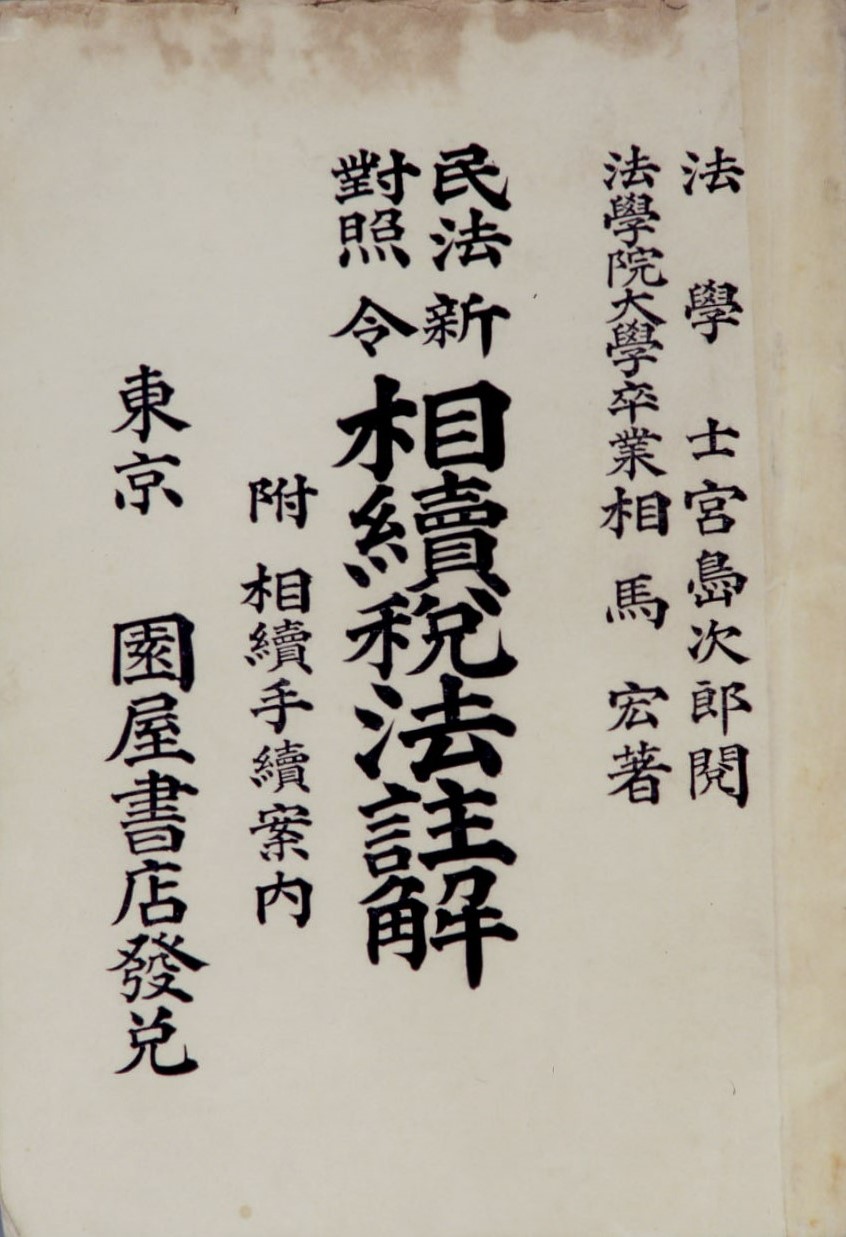 法學士宮島次郎閱
法學院大學卒業相馬宏著
民法
對照
新
令
相續稅法註解
附 相續手續案内
東京 園屋書店發兌